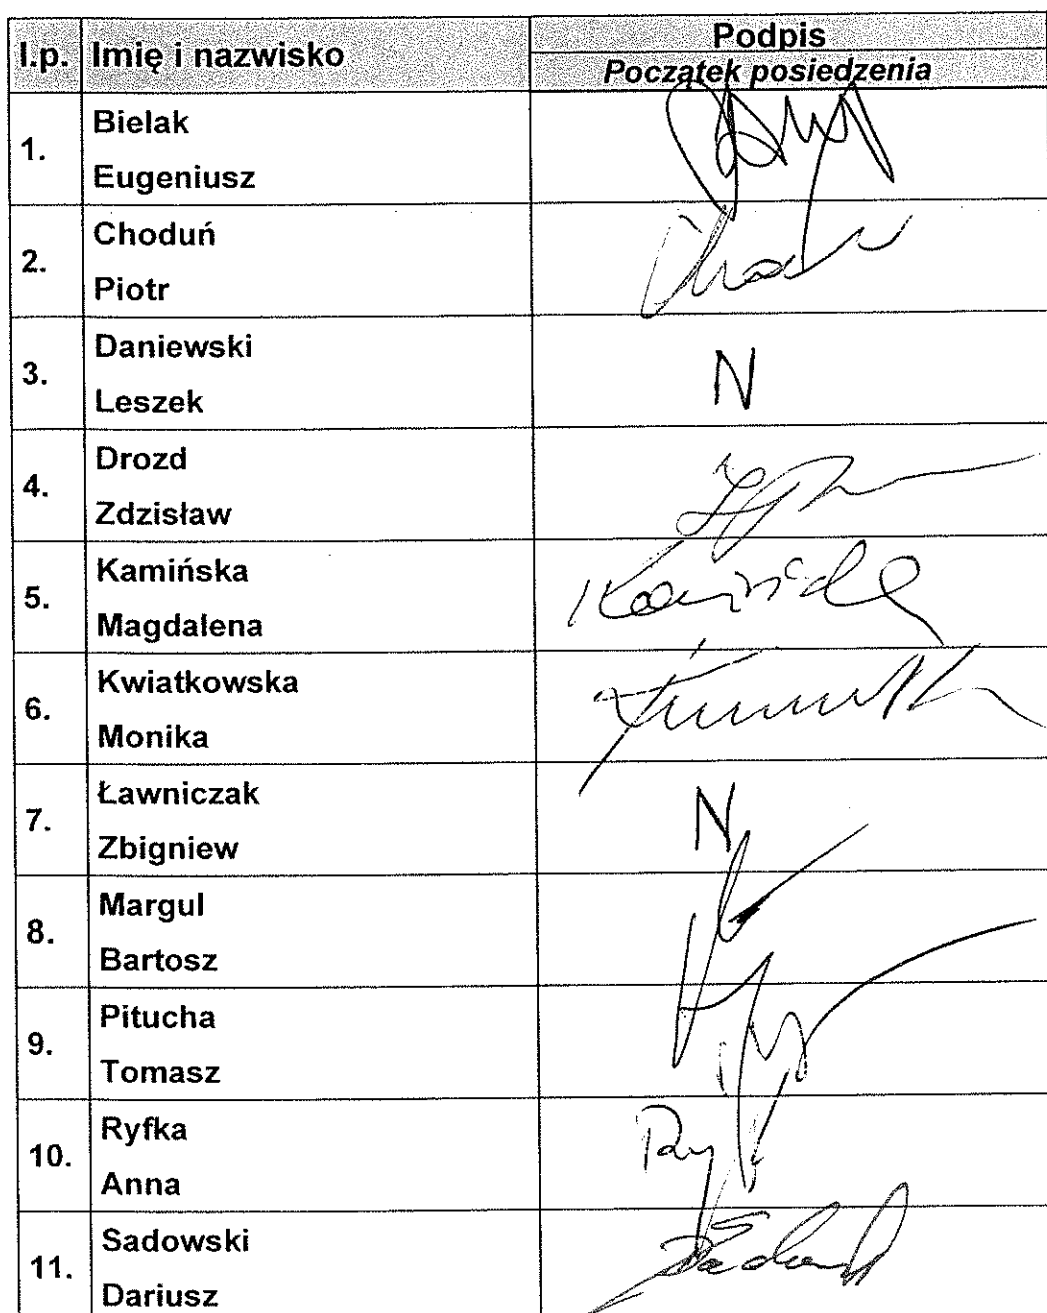 l.p. Imię i nazwisko Podpis
Początek posiedzenia
1. Bielak
Eugeniusz
2. Choduń
Piotr
3. Daniewski N
Leszek
4. Drozd
Zdzisław
5. Kamińska
Magdalena
6. Kwiatkowska
Monika
7. Ławniczak N
Zbigniew
8. Margul
Bartosz
9. Pitucha
Tomasz
10. Ryfka
Anna
11. Sadowski
Dariusz